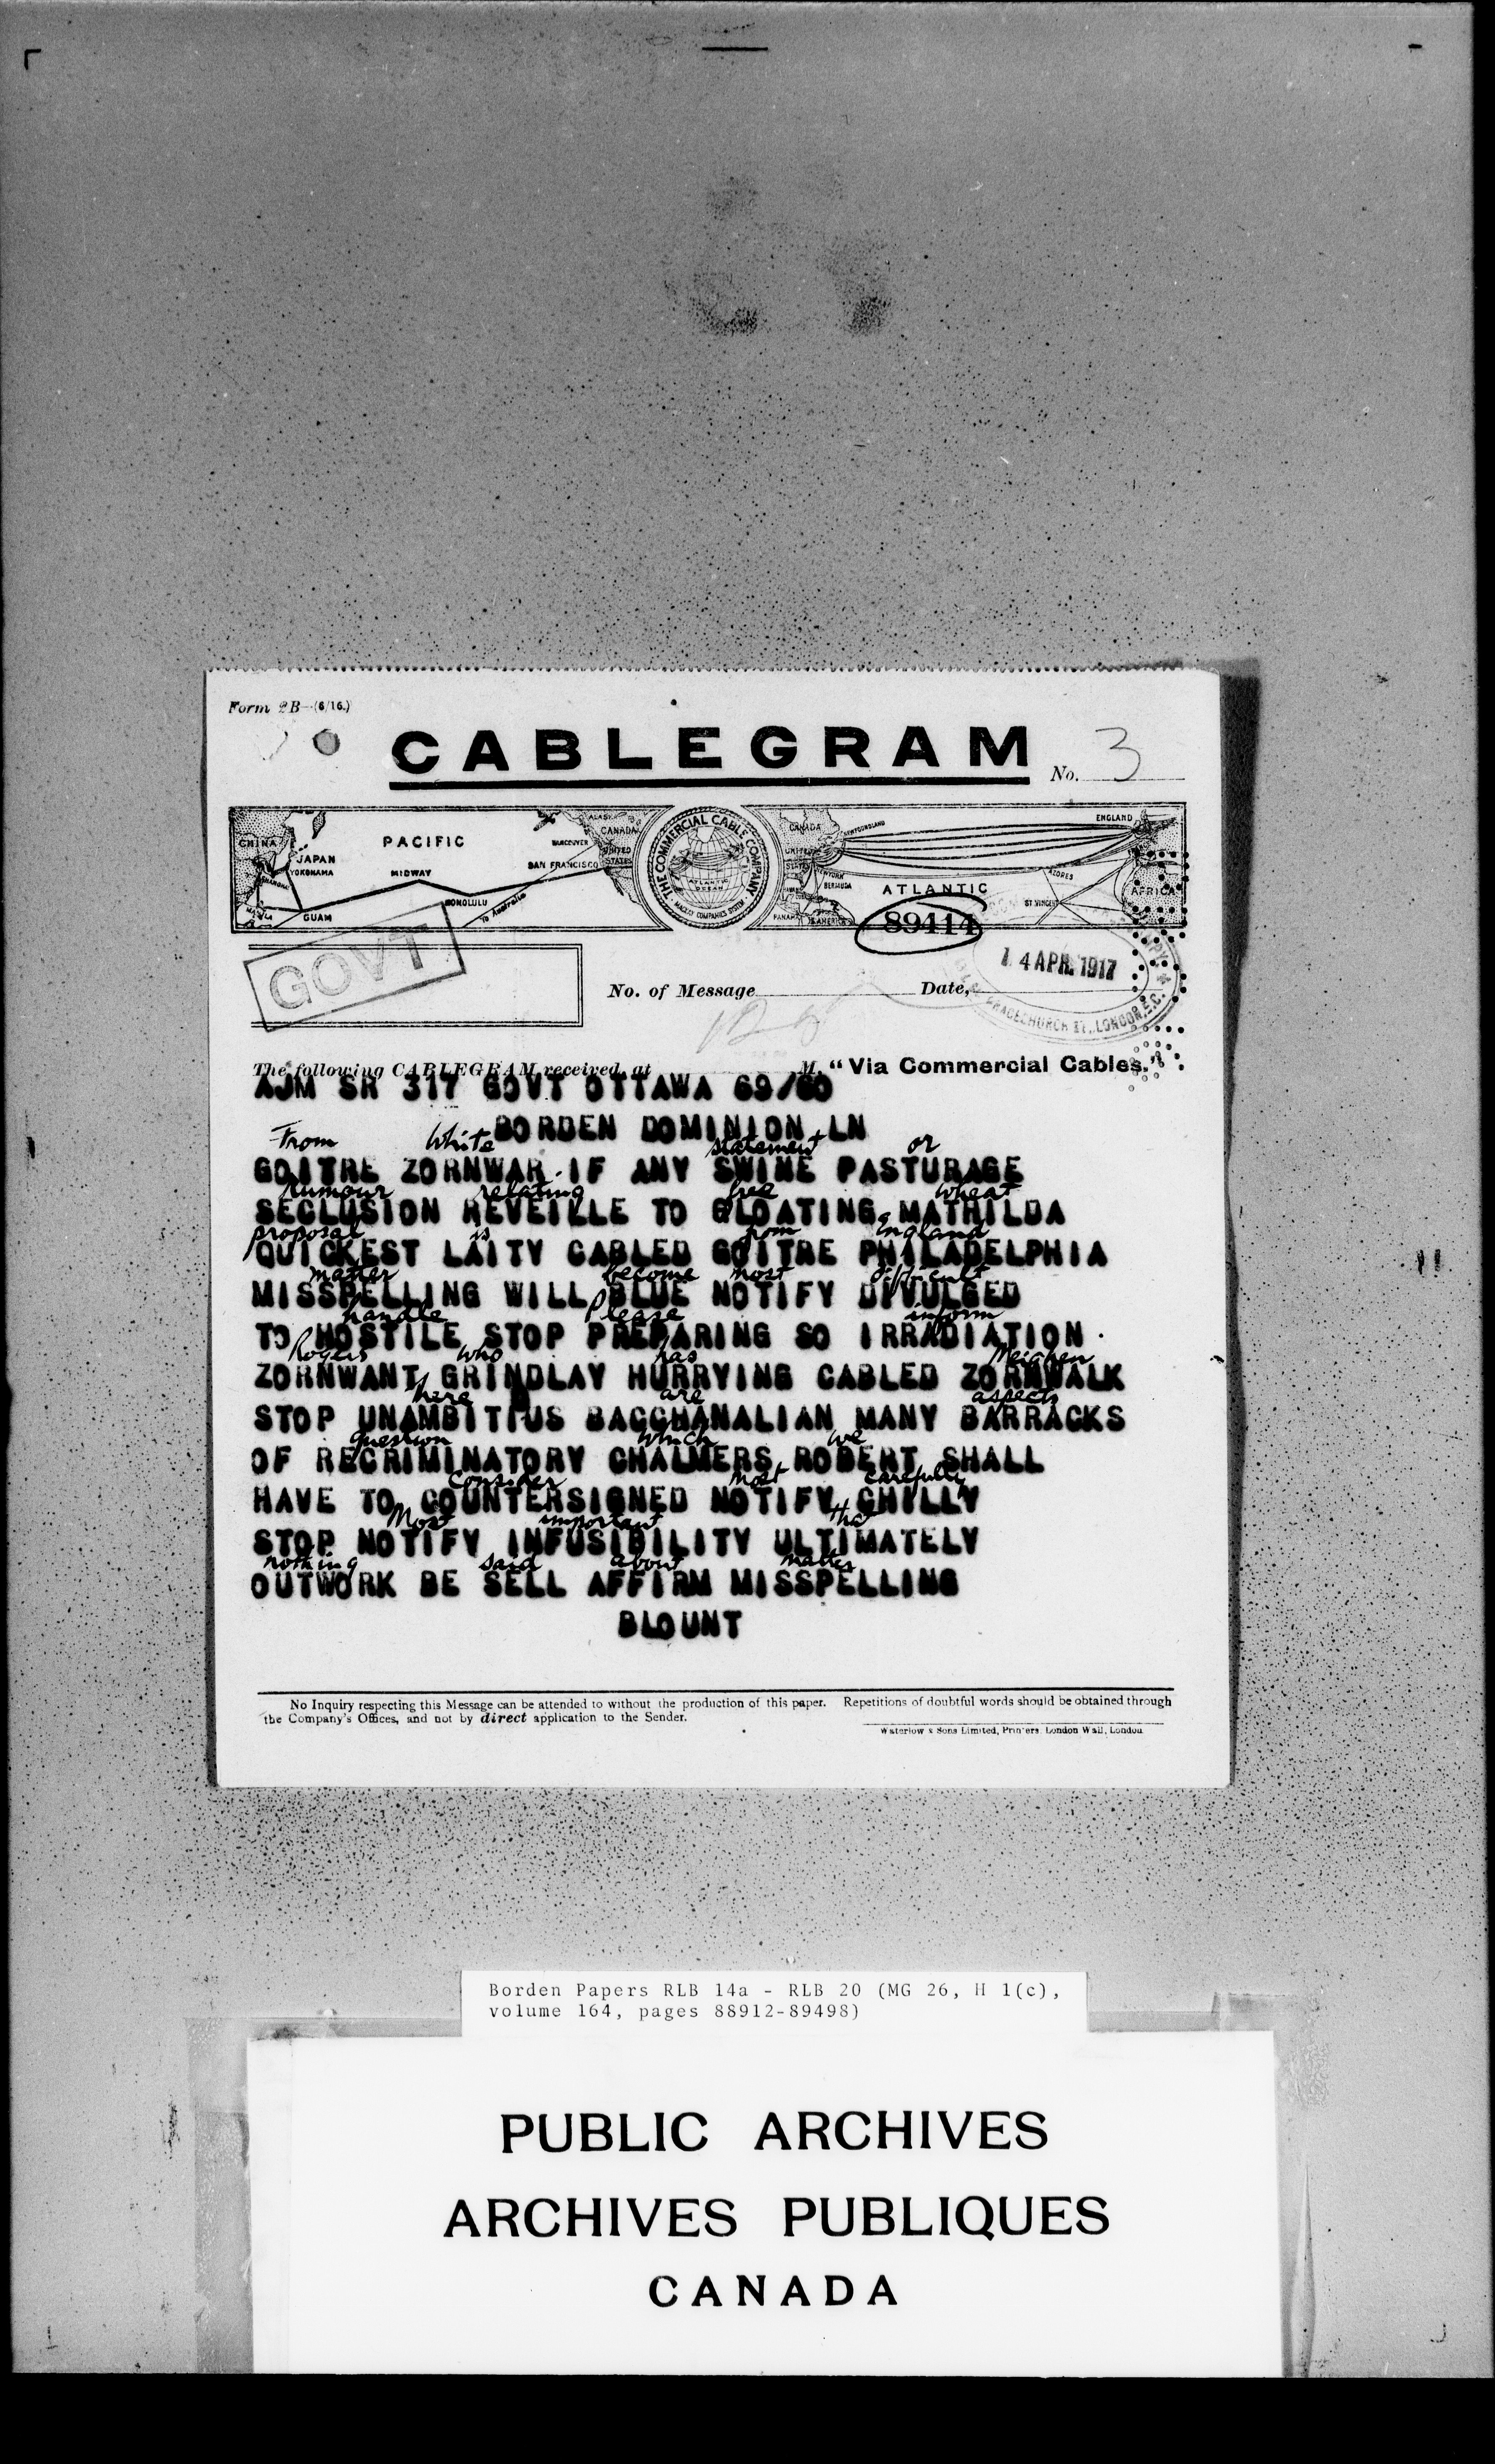 Form 2B—(6/16.)
CABLEGRAM
No. 3
CHINA
JAPAN
YOKOHAMA
SHANGHAI
MANILA
GUAM
PACIFIC
MIDWAY
HONOLULU
To Australia
VANCOUVER
SAN FRANCISCO
ALASKA
CANADA
UNITED
STATES
THE COMMERCIAL CABLE COMPANY
ATLANTIC
OCEAN
MACKAY COMPANIES SYSTEM
CANADA
NEWFOUNDLAND
UNITED
STATES
NEW YORK
BERMUDA
PANAMA
S. AMERICA
ATLANTIC
AZORES
ST VINCENT
ENGLAND
AFRICA
89414
GOVT
14 APR. 1917
GRACECHURCH ST., LONDON, E.C.
No. of Message
Date,
126
The following CABLEGRAM received at M. "Via Commercial Cables."
AJM SR 317 GOVT OTTAWA 69/60
BORDEN DOMINION LN
From White statement or
GOITRE ZORNWAR IF ANY SWINE PASTURAGE
rumour relating free wheat
SECLUSION REVEILLE TO GLOATING MATHILDA
proposal is from England
QUICKEST LAITY CABLED GOITRE PHILADELPHIA
matter become most difficult
MISSPELLING WILL BLUE NOTIFY DIVULGED
handle Please inform
TO HOSTILE STOP PREPARING SO IRRADIATION
Rogers who has Meighen
ZORNWANT GRINDLAY HURRYING CABLED ZORNWALK
here are aspects
STOP UNAMBITIUS BACCHANALIAN MANY BARRACKS
question which we
OF RECRIMINATORY CHALMERS ROBERT SHALL
consider most carefully
HAVE TO COUNTERSIGNED NOTIFY CHILLY
Most important that
STOP NOTIFY INFUSIBILITY ULTIMATELY
nothing said about matter
OUTWORK BE SELL AFFIRM MISSPELLING
BLOUNT
No Inquiry respecting this Message can be attended to without the production of this paper. Repetitions of doubtful words should be obtained through
the Company's Offices, and not by direct application to the Sender.
Waterlow & Sons Limited, Printers, London Wall, London
Borden Papers RLB 14a - RLB 20 (MG 26, H 1(c),
volume 164, pages 88912-89498)
PUBLIC ARCHIVES
ARCHIVES PUBLIQUES
CANADA